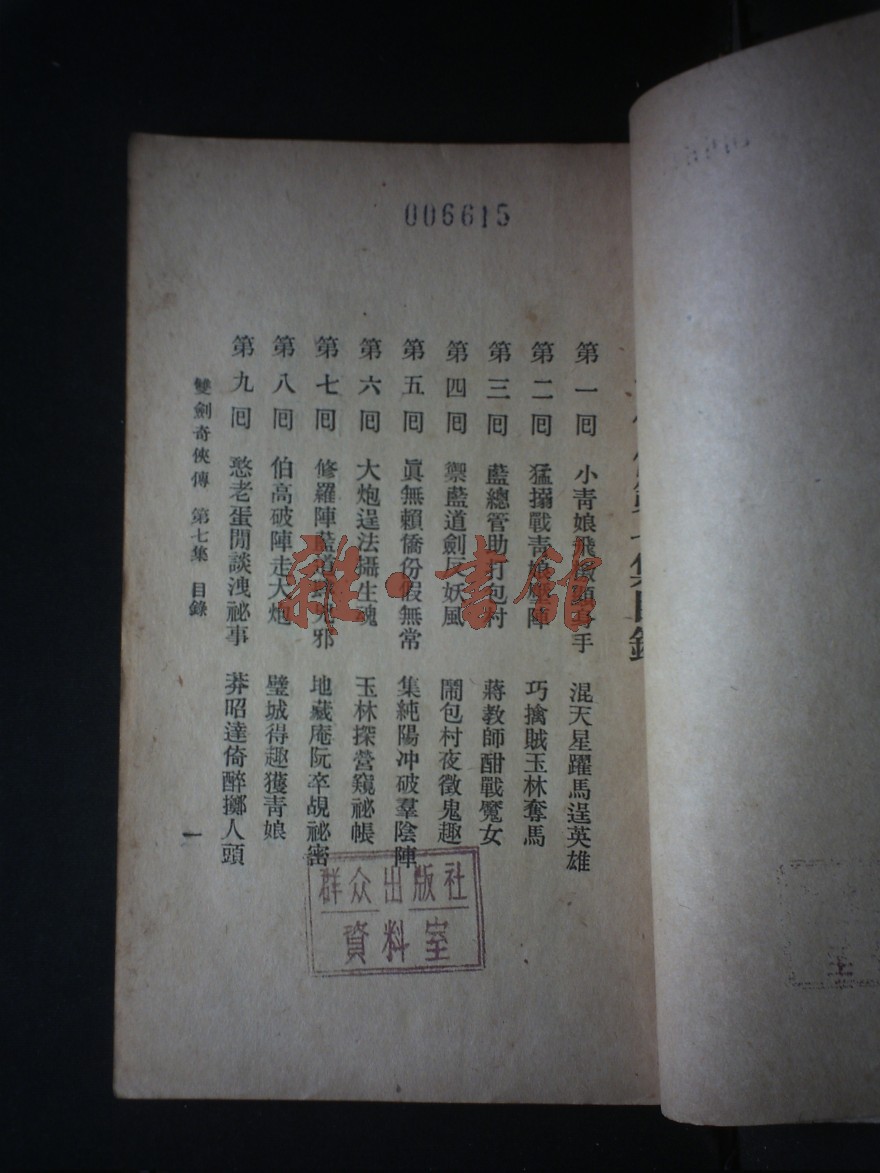 006615
第一回 小青娘飛 手 混天星躍馬逞英雄
第二回 猛搦戰青娘 陣 巧擒賊玉林奪馬
第三回 藍總管助打包村 蔣教師酣戰魔女
第四回 禦藍道劍反妖風 鬧包村夜徵鬼趣
第五回 眞無賴僑份假無常 集純陽冲破羣陰陣
第六回 大炮逞法攝生魂 玉林探營窺祕帳
第七回 修羅陣藍道 邪 地藏庵阮卒覘祕密
第八回 伯高破陣走大炮 璧城得趣獲青娘
第九回 憨老蛋閒談洩祕事 莽昭達倚醉擲人頭
雙劍奇俠傳 第七集 目錄
一
雜·書館
群众出版社
資料室